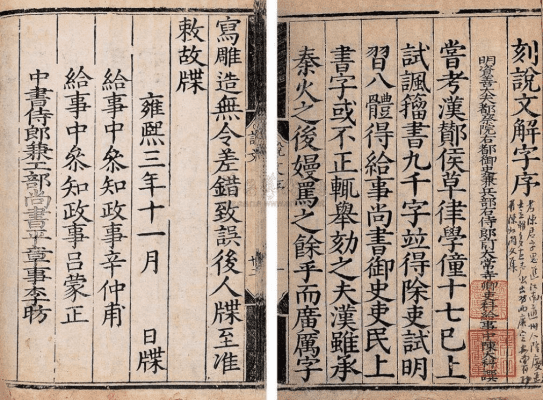 刻說文解字序
明資善大夫都察院右都御史兼工部右侍郎前大常寺卿吏科給事中陳大科譔
嘗考漢酇侯草律學僮十七巳上
試諷籀書九千字竝得除吏試明
習八體得給事尚書御史吏民上
書字或不正輒舉劾之夫漢雖承
秦火之後嫚罵之餘乎而廣厲字
寫雕造無令差錯致誤後人牒至准
敕故牒
雍熙三年十一月 日牒
給事中叅知政事辛仲甫
給事中叅知政事呂蒙正
中書侍郎兼工部尚書平章事李昉